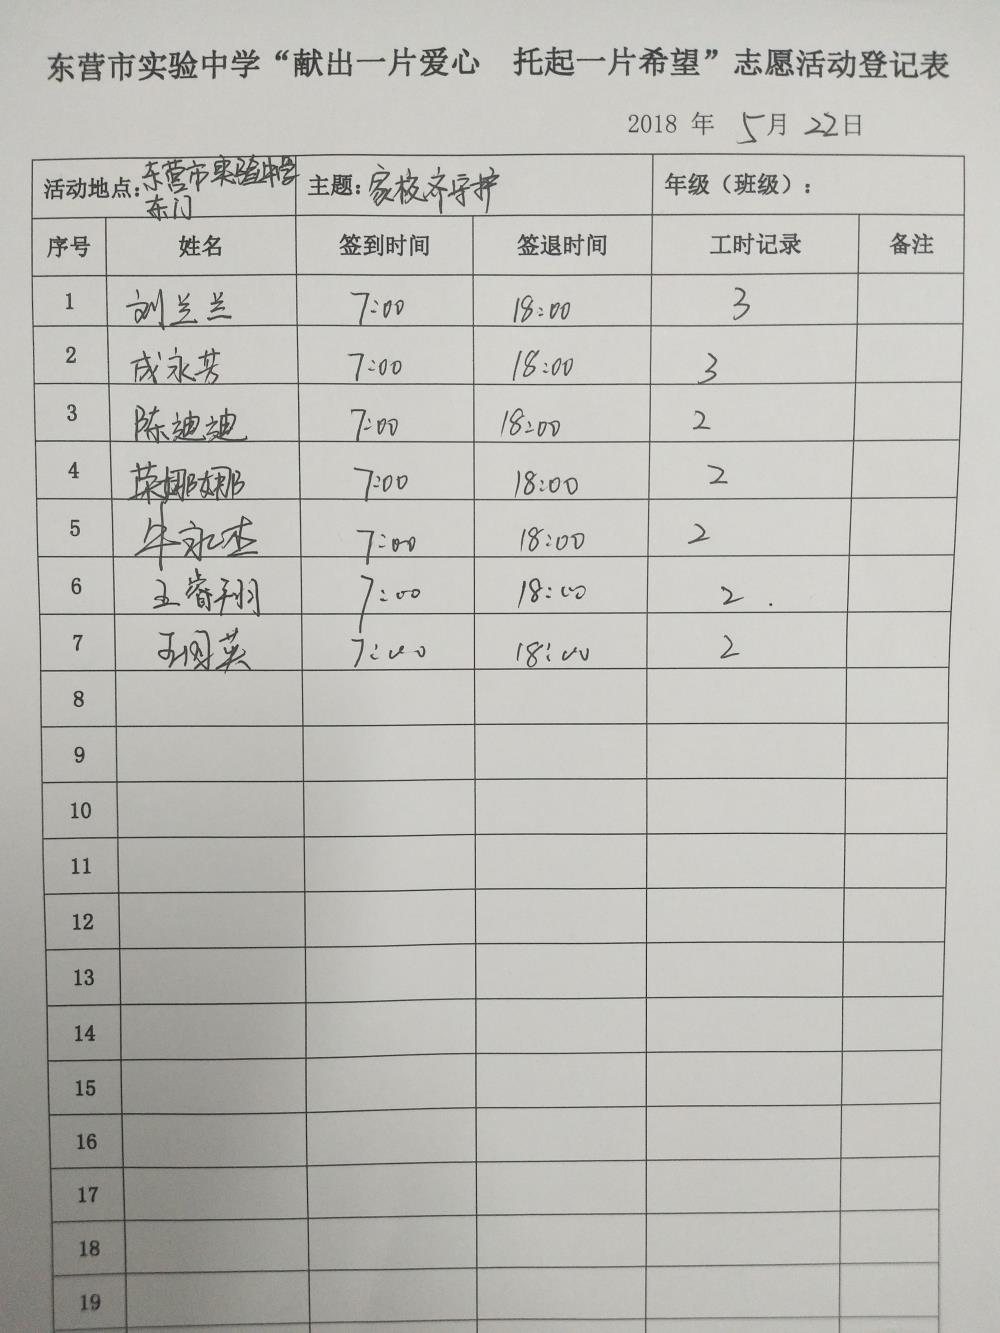 东营市实验中学“献出一片爱心 托起一片希望”志愿活动登记表
2018 年 5月 22日
活动地点:东营市实验中学东门 主题:家校齐守护 年级(班级):
序号 姓名 签到时间 签退时间 工时记录 备注
1 刘兰兰 7:00 18:00 3
2 成永芳 7:00 18:00 3
3 陈迪迪 7:00 18:00 2
4 荣娜娜 7:00 18:00 2
5 牛永杰 7:00 18:00 2
6 王睿翔 7:00 18:00 2
7 王国英 7:00 18:00 2
8
9
10
11
12
13
14
15
16
17
18
19